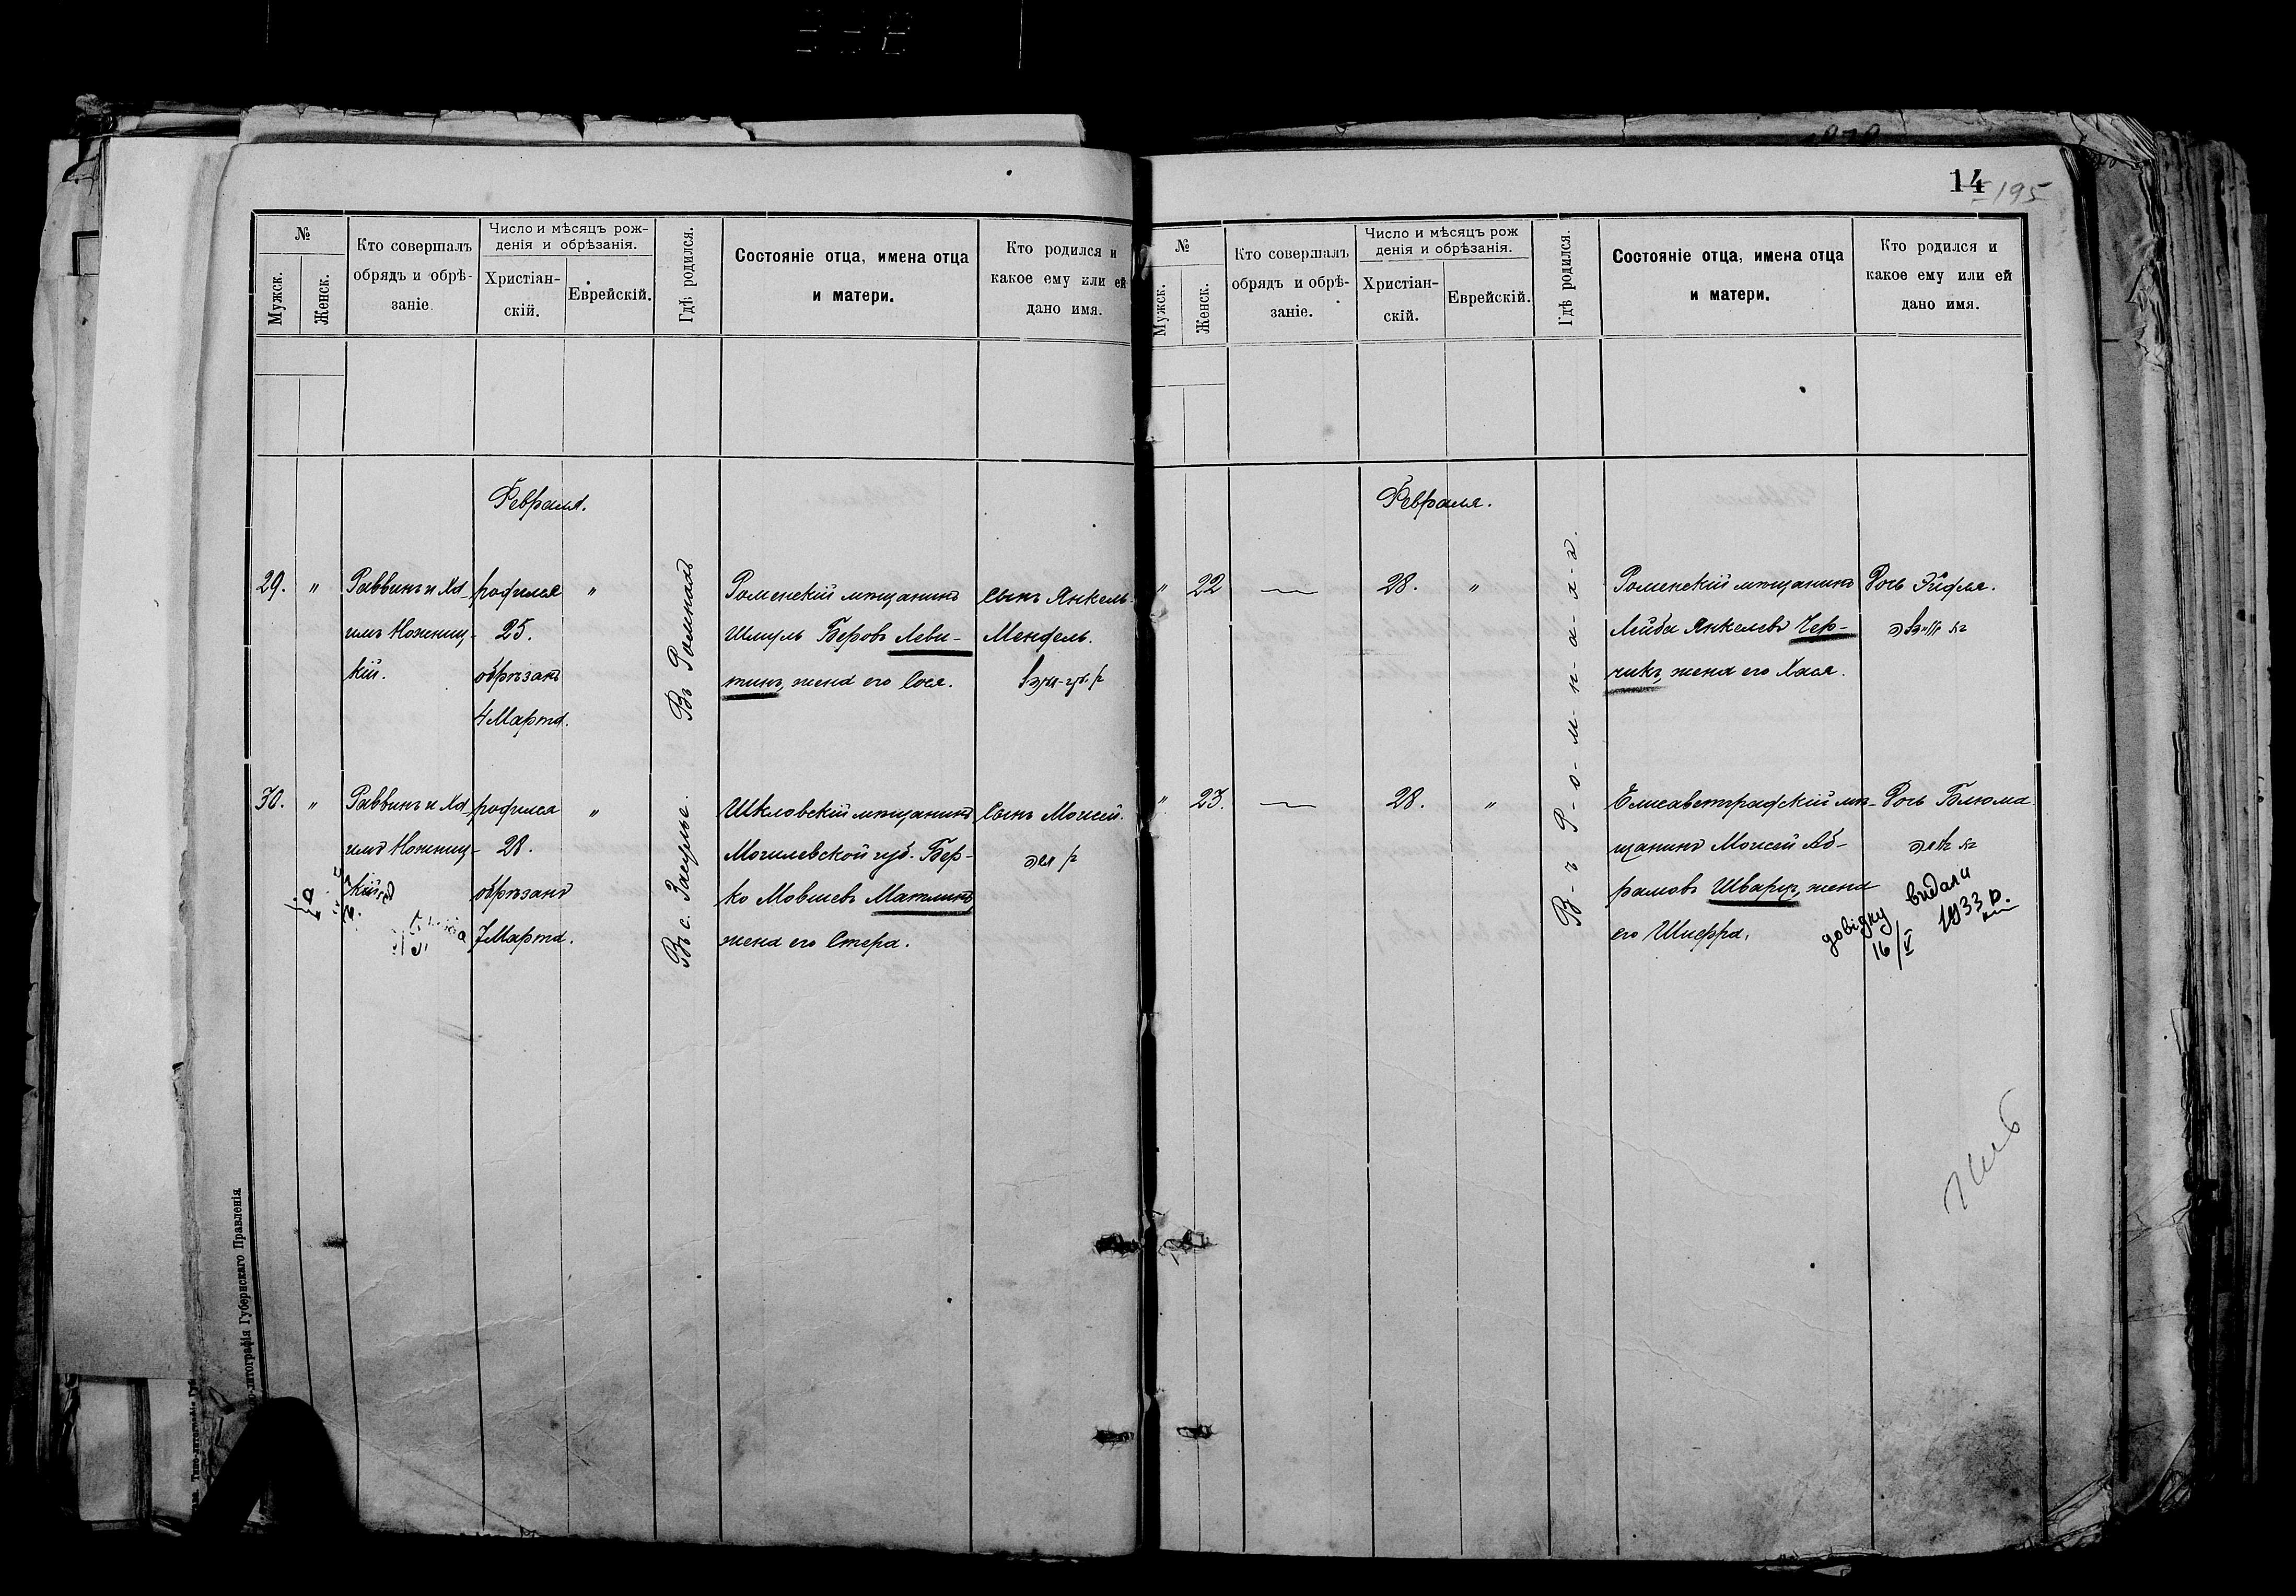 14
195
№
Мужск.
Женск.
Кто совершалъ
обрядъ и обрѣ-
заніе
Число и мѣсяцъ рож-
денія и обрѣзанія.
Христіан-
скій.
Еврейскій.
Гдѣ родился.
Состояніе отца, имена отца
и матери.
Кто родился и
какое ему или ей
дано имя.
Февраля.
29.
"
Раввинъ и Ха-
имъ Ножниц-
кій.
родился
25.
обрѣзанъ
4 Марта.
"
Въ Ромнахъ
Роменскій мѣщанинъ
Шмуль Беровъ Леви-
тинъ, жена его Сося.
Сынъ Янкель-
Мендель.
30.
"
Раввинъ и Ха-
имъ Ножниц-
кій
родился
28.
обрѣзанъ
7 Марта.
"
Въ с. Засулье.
Шкловскій мѣщанинъ
Могилевской губ. Бер-
ко Мовшевъ Матлинъ,
жена его Стера.
Сынъ Моисей.
№
Мужск.
Женск.
Кто совершалъ
обрядъ и обрѣ-
заніе.
Число и мѣсяцъ рож
денія и обрѣзанія.
Христіан-
скій.
Еврейскій.
Гдѣ родился.
Состояніе отца, имена отца
и матери.
Кто родился и
какое ему или ей
дано имя.
Февраля.
"
22
28.
"
В-ъ Р-о-м-н-а-х-ъ.
Роменскій мѣщанинъ
Лейба Янкелевъ Чер-
чикъ, жена его Хася.
Дочь Эйдля.
"
23.
28.
"
Елисаветградскій мѣ-
щанинъ Моисей Аб-
рамовъ Шварц, жена
его Шифра.
Дочь Блюма.
довідку видали
16/V 1933 р.
-литографія Губернскаго Правленія